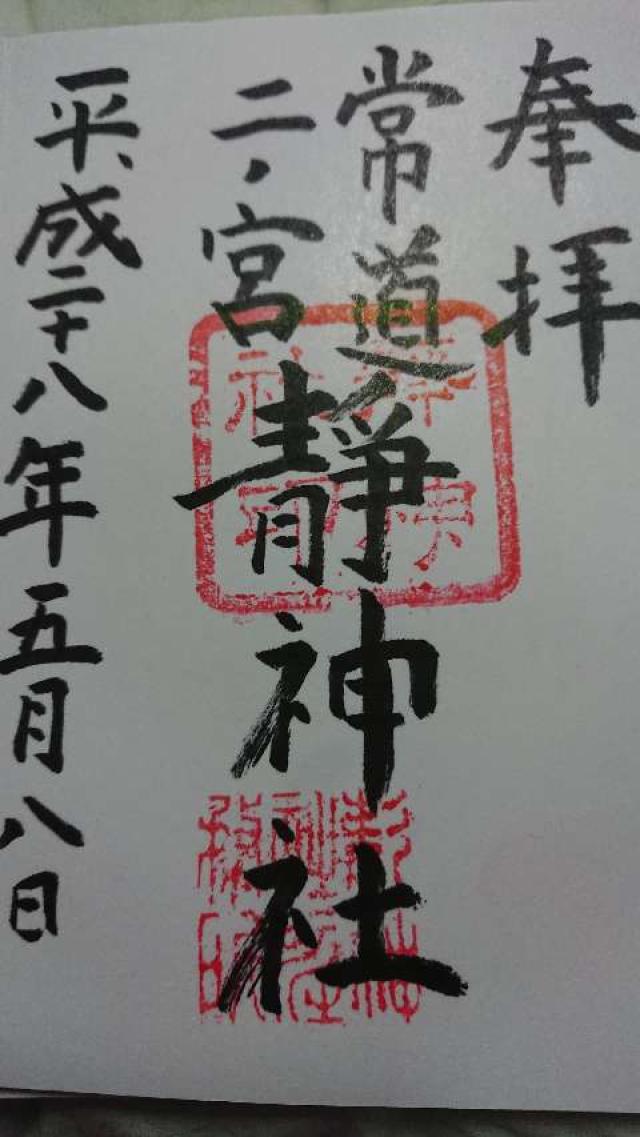 奉拝
常道
二ノ宮
靜神社
平成二十八年五月八日